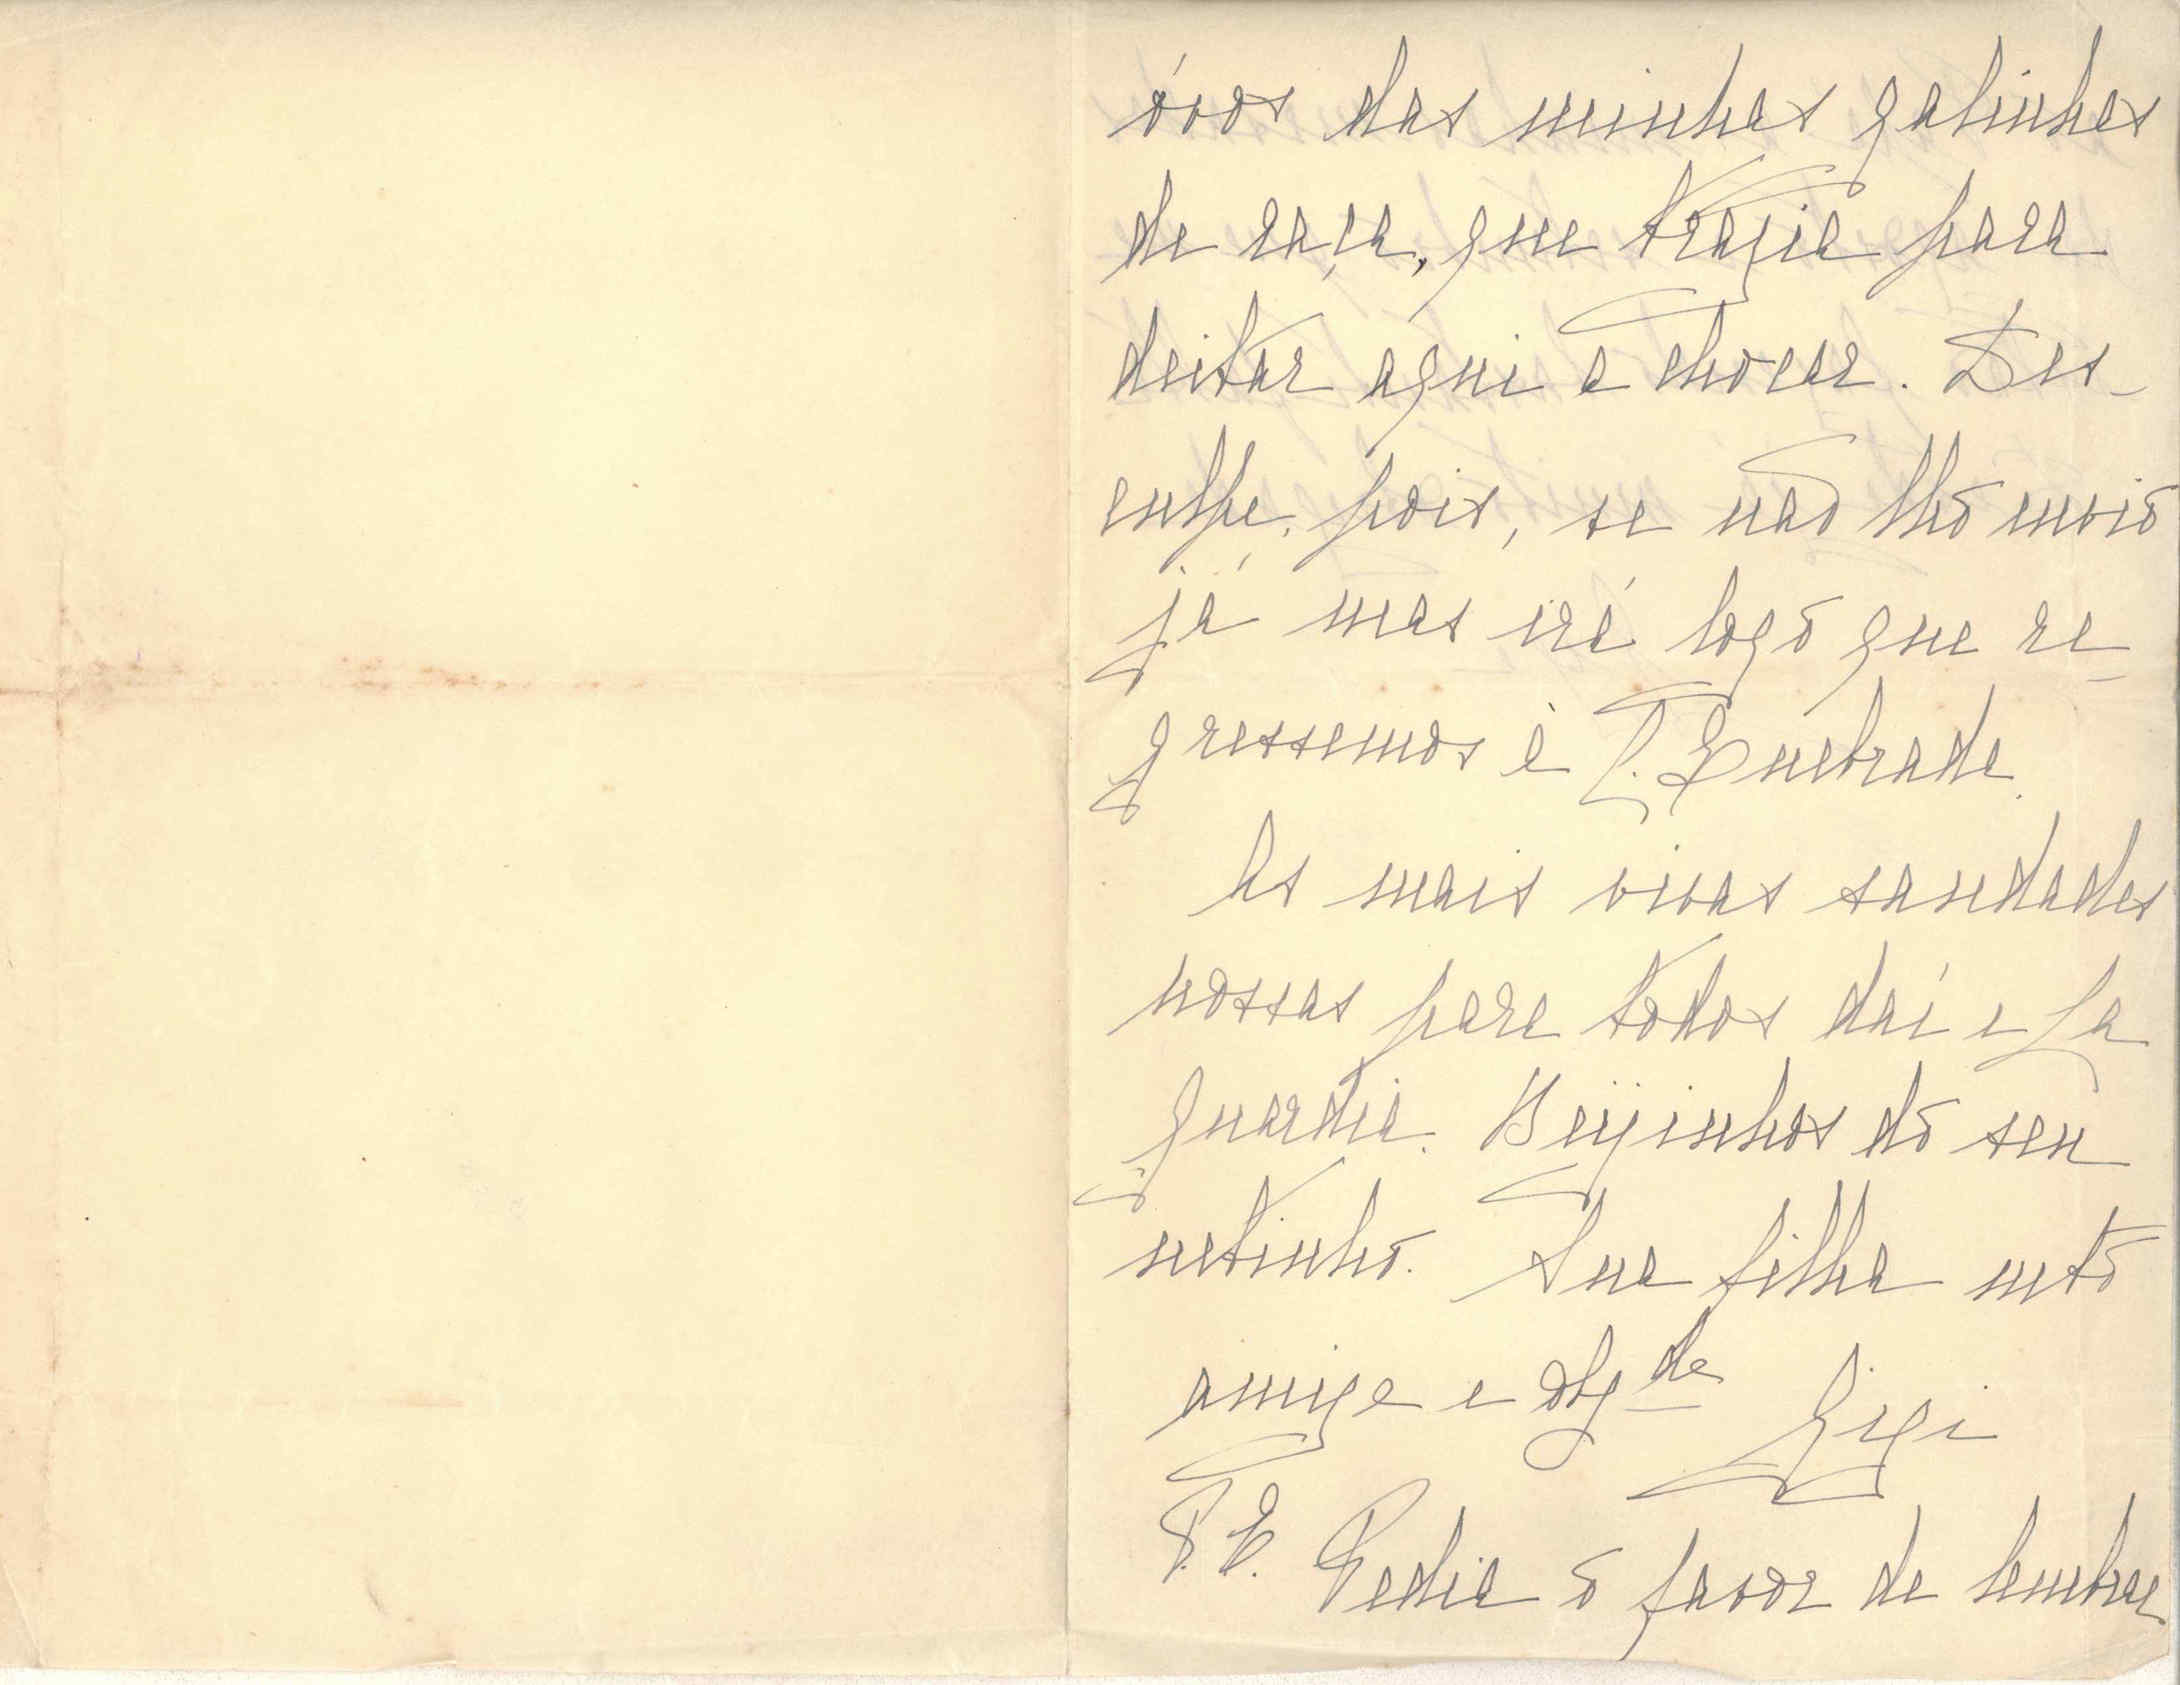 óvos das minhas galinhas
de raça, que trazia para
deitar aqui a chocar. Des-
culpe, pois, se não lho envio
já mas irá logo que re-
gressemos à P. Quebrada.
As mais vivas saudades
nossas para todos daí e La
Guardia. Beijinhos do seu
netinho. Sua filha mto
amiga e obgda
Gigi
P.E. Pedia o favor de lembrar